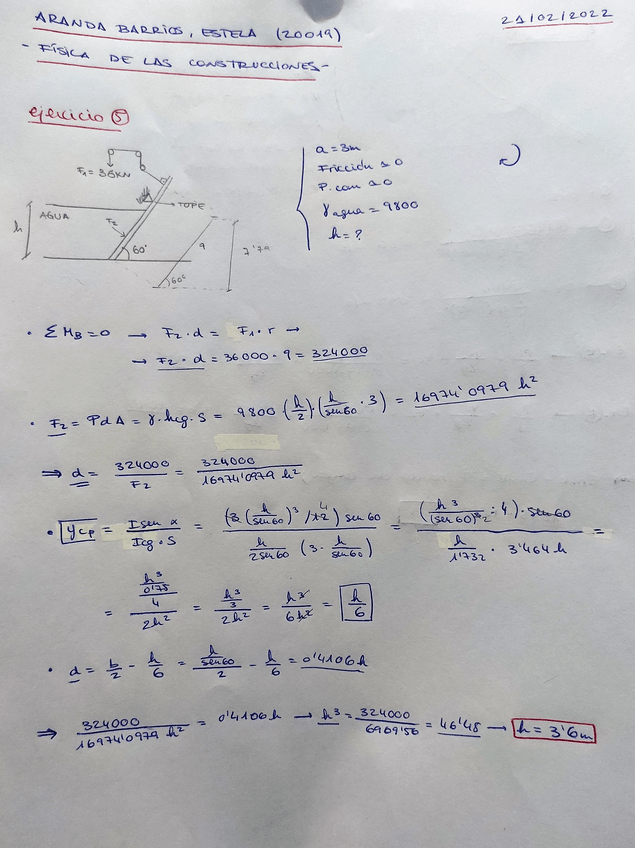 ARANDA BARRIOS, ESTELA (20019)
21/02/2022
- FÍSICA DE LAS CONSTRUCCIONES -
ejercicio 5
F₁ = 36KN
TOPE
AGUA
F₂
h
60°
a
60°
7'79
a = 3m
Fricción ≈ 0
P. com ≈ 0
γ agua = 9800
h = ?
• ΣM_B = 0 → F₂ · d = F₁ · r →
→ F₂ · d = 36000 · 9 = 324000
• F₂ = PdA = γ · hcg · S = 9800 (h/2) · (h/sen60 · 3) = 16974'0979 h²
⇒ d = 324000/F₂ = 324000/16974'0979 h²
• ycp = I sen α / Icg · S = (3 (h/sen60)³ /12) sen 60 / h/2sen60 (3 · h/sen60) = (h³/(sen60)³² : 4) · sen60 / h/1'732 · 3'464 h =
= h³/0'75/4 / 2h² = h³/3 / 2h² = h³/6h² = h/6
• d = b/2 - h/6 = h/sen60 / 2 - h/6 = 0'4106h
⇒ 324000/16974'0979 h² = 0'4106h → h³ = 324000/6969'56 = 46'48 → h = 3'6m